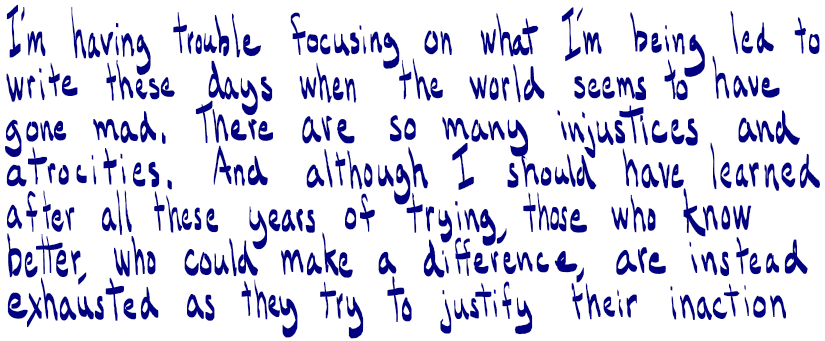 I'm having trouble focusing on what I'm being led to
write these days when the world seems to have
gone mad. There are so many injustices and
atrocities. And although I should have learned
after all these years of trying, those who know
better, who could make a difference, are instead
exhausted as they try to justify their inaction